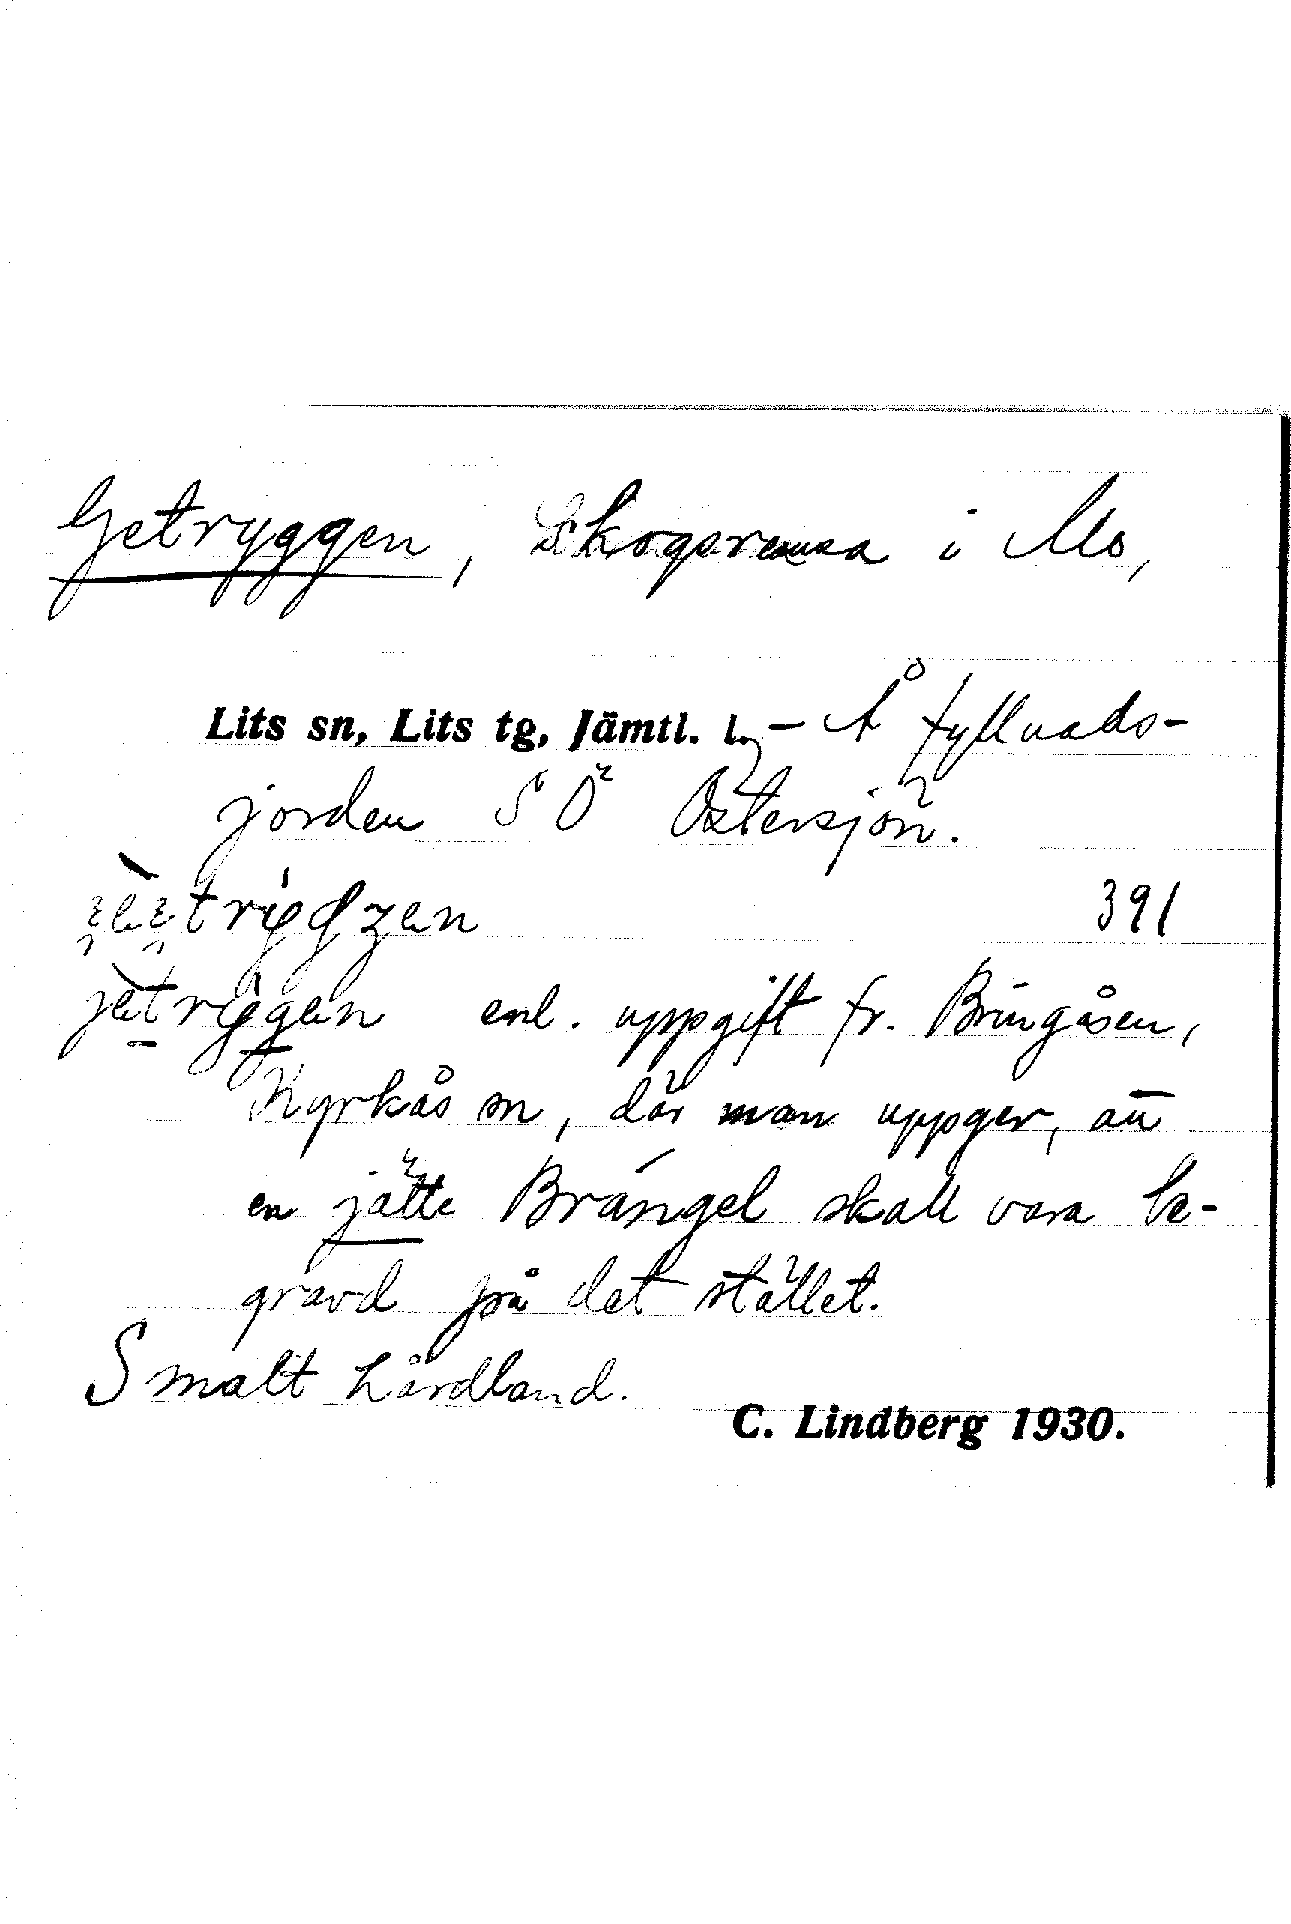 Getryggen, Skogsremsa i Mo,
Lits sn, Lits tg, Jämtl. l. - Å fyllnads-
jorden SÖ Östersjön.
391
enl. uppgift fr. Bringåsen,
Kyrkås sn, där man uppger, att
en jätte Brängel skall vara be-
gravd på det stället.
Smalt hårdland.
C. Lindberg 1930.